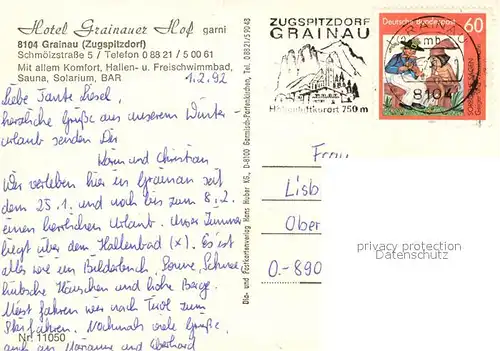 Hotel Grainauer Hof garni
8104 Grainau (Zugspitzdorf)
Schmölzstraße 5 / Telefon 0 88 21 / 5 00 61
Mit allem Komfort, Hallen- u. Freischwimmbad,
Sauna, Solarium, BAR
1.2.92
Liebe Tante Liesel,
herzliche Grüße aus unserem Winter-
urlaub senden Dir
Karin und Christian
Wir verleben hier in Grainau seit
dem 25.1. und noch bis zum 8.2.
einen herrlichen Urlaub. Unser Zimmer
liegt über dem Hallenbad (x). Es ist
alles wie im Bilderbuch, Sonne, Schnee,
hübsche Häuschen und hohe Berge.
Meist fahren wir nach Tirol zum
Skifahren. Nochmals viele Grüße,
auch an Marianne und Eberhard
Nr. 11050
Dia- und Postkartenverlag Hans Huber KG., D-8100 Garmisch-Partenkirchen, Tel. 0 88 21/5 90 48
ZUGSPITZDORF
GRAINAU
Höhenluftkurort 750 m
Deutsche Bundespost
60
GRAINAU
8104
Frau
Lisb
Ober
O-890
privacy protection
Datenschutz